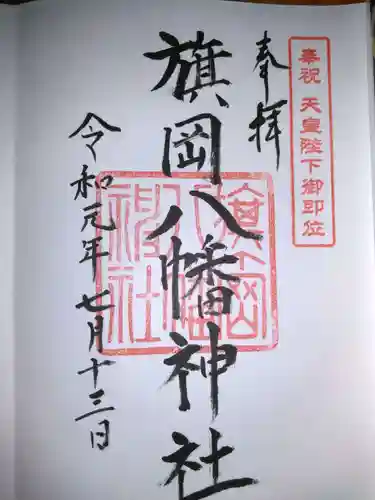 奉祝 天皇陛下御即位
奉拝
旗岡八幡神社
旗岡八幡神社
令和元年七月十三日